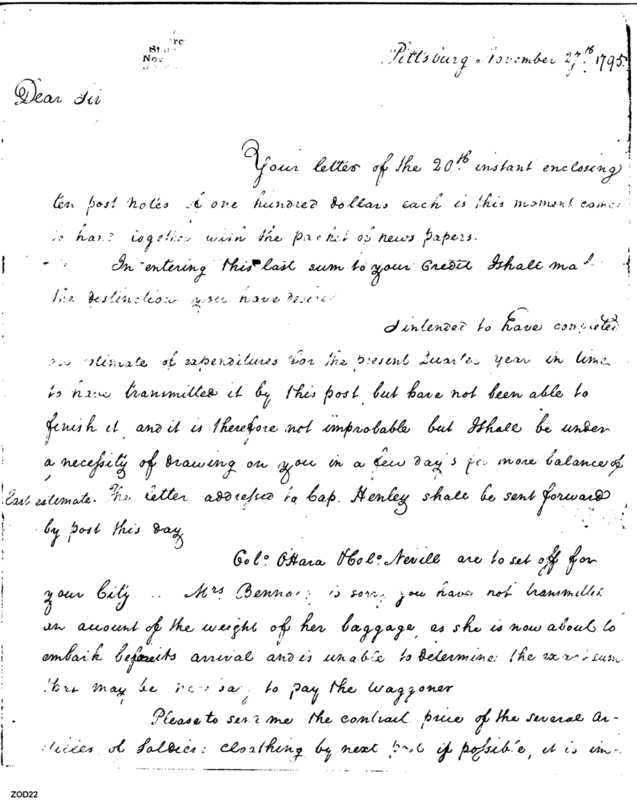 Pittsburg November 27th 1795.
Dear Sir
Your letter of the 20th instant enclosing
ten post notes of one hundred dollars each is this moment come
to hand together with the packet of news papers.
In entering this last sum to your Credit I shall
the distinction you have
I intended to have completed
an estimate of expenditures for the present Quarter year in time
to have transmitted it by this post, but have not been able to
finish it, and it is therefore not improbable but I shall be under
a necessity of drawing on you in a few day's for more balance of
Last estimate. The letter addressed to Cap. Henley shall be sent forward
by post this day
Colo. OHara & Colo. Nevill are to set off for
your City .. Mrs is sorry you have not transmitted
an account of the weight of her baggage, as she is now about to
embark before its arrival and is unable to determine the exact sum
that may be necessary to pay the waggoner
Please to send me the contract price of the several Ar-
ticles of Soldiers cloathing by next post if possible, it is im-
ZOD22